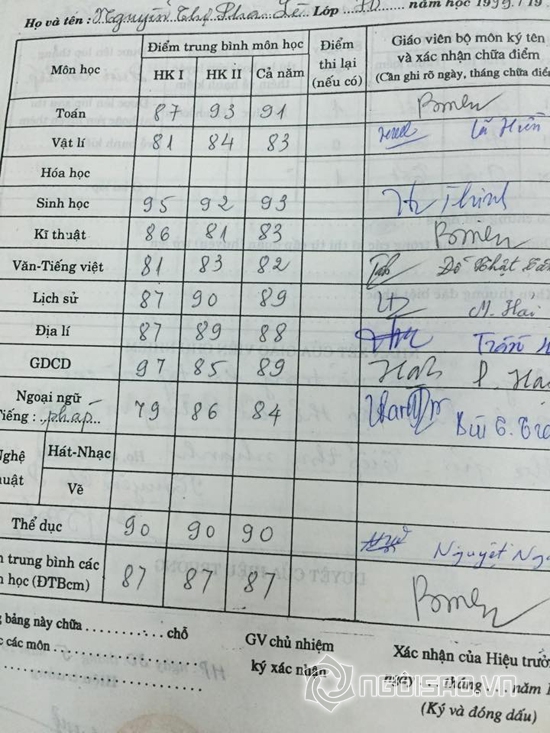 Họ và tên : Nguyễn Thị Lớp năm học 1999 / 19
Môn học
Điểm trung bình môn học
HK I HK II Cả năm
Điểm
thi lại
(nếu có)
Giáo viên bộ môn ký tên
và xác nhận chữa điểm
(Cần ghi rõ ngày, tháng chữa điểm
Toán 87 93 91
Vật lí 81 84 83
Hóa học
Sinh học 95 92 93 Thinh
Kĩ thuật 86 81 83
Văn-Tiếng việt 81 83 82 Đỗ Nhật
Lịch sử 87 90 89 M. Hai
Địa lí 87 89 88 Trần
GDCD 97 85 89
Ngoại ngữ
Tiếng : pháp 79 86 84 Bùi
Nghệ
thuật
Hát-Nhạc
Vẽ
Thể dục 90 90 90 Nguyệt Nga
trung bình các
học (ĐTBcm) 87 87 87
bảng này chữa ........... chỗ
các môn
GV chủ nhiệm
ký xác nhận
Xác nhận của Hiệu trưở
ngày ... tháng ... năm 1
(Ký và đóng dấu)
NGÔISAO.VN